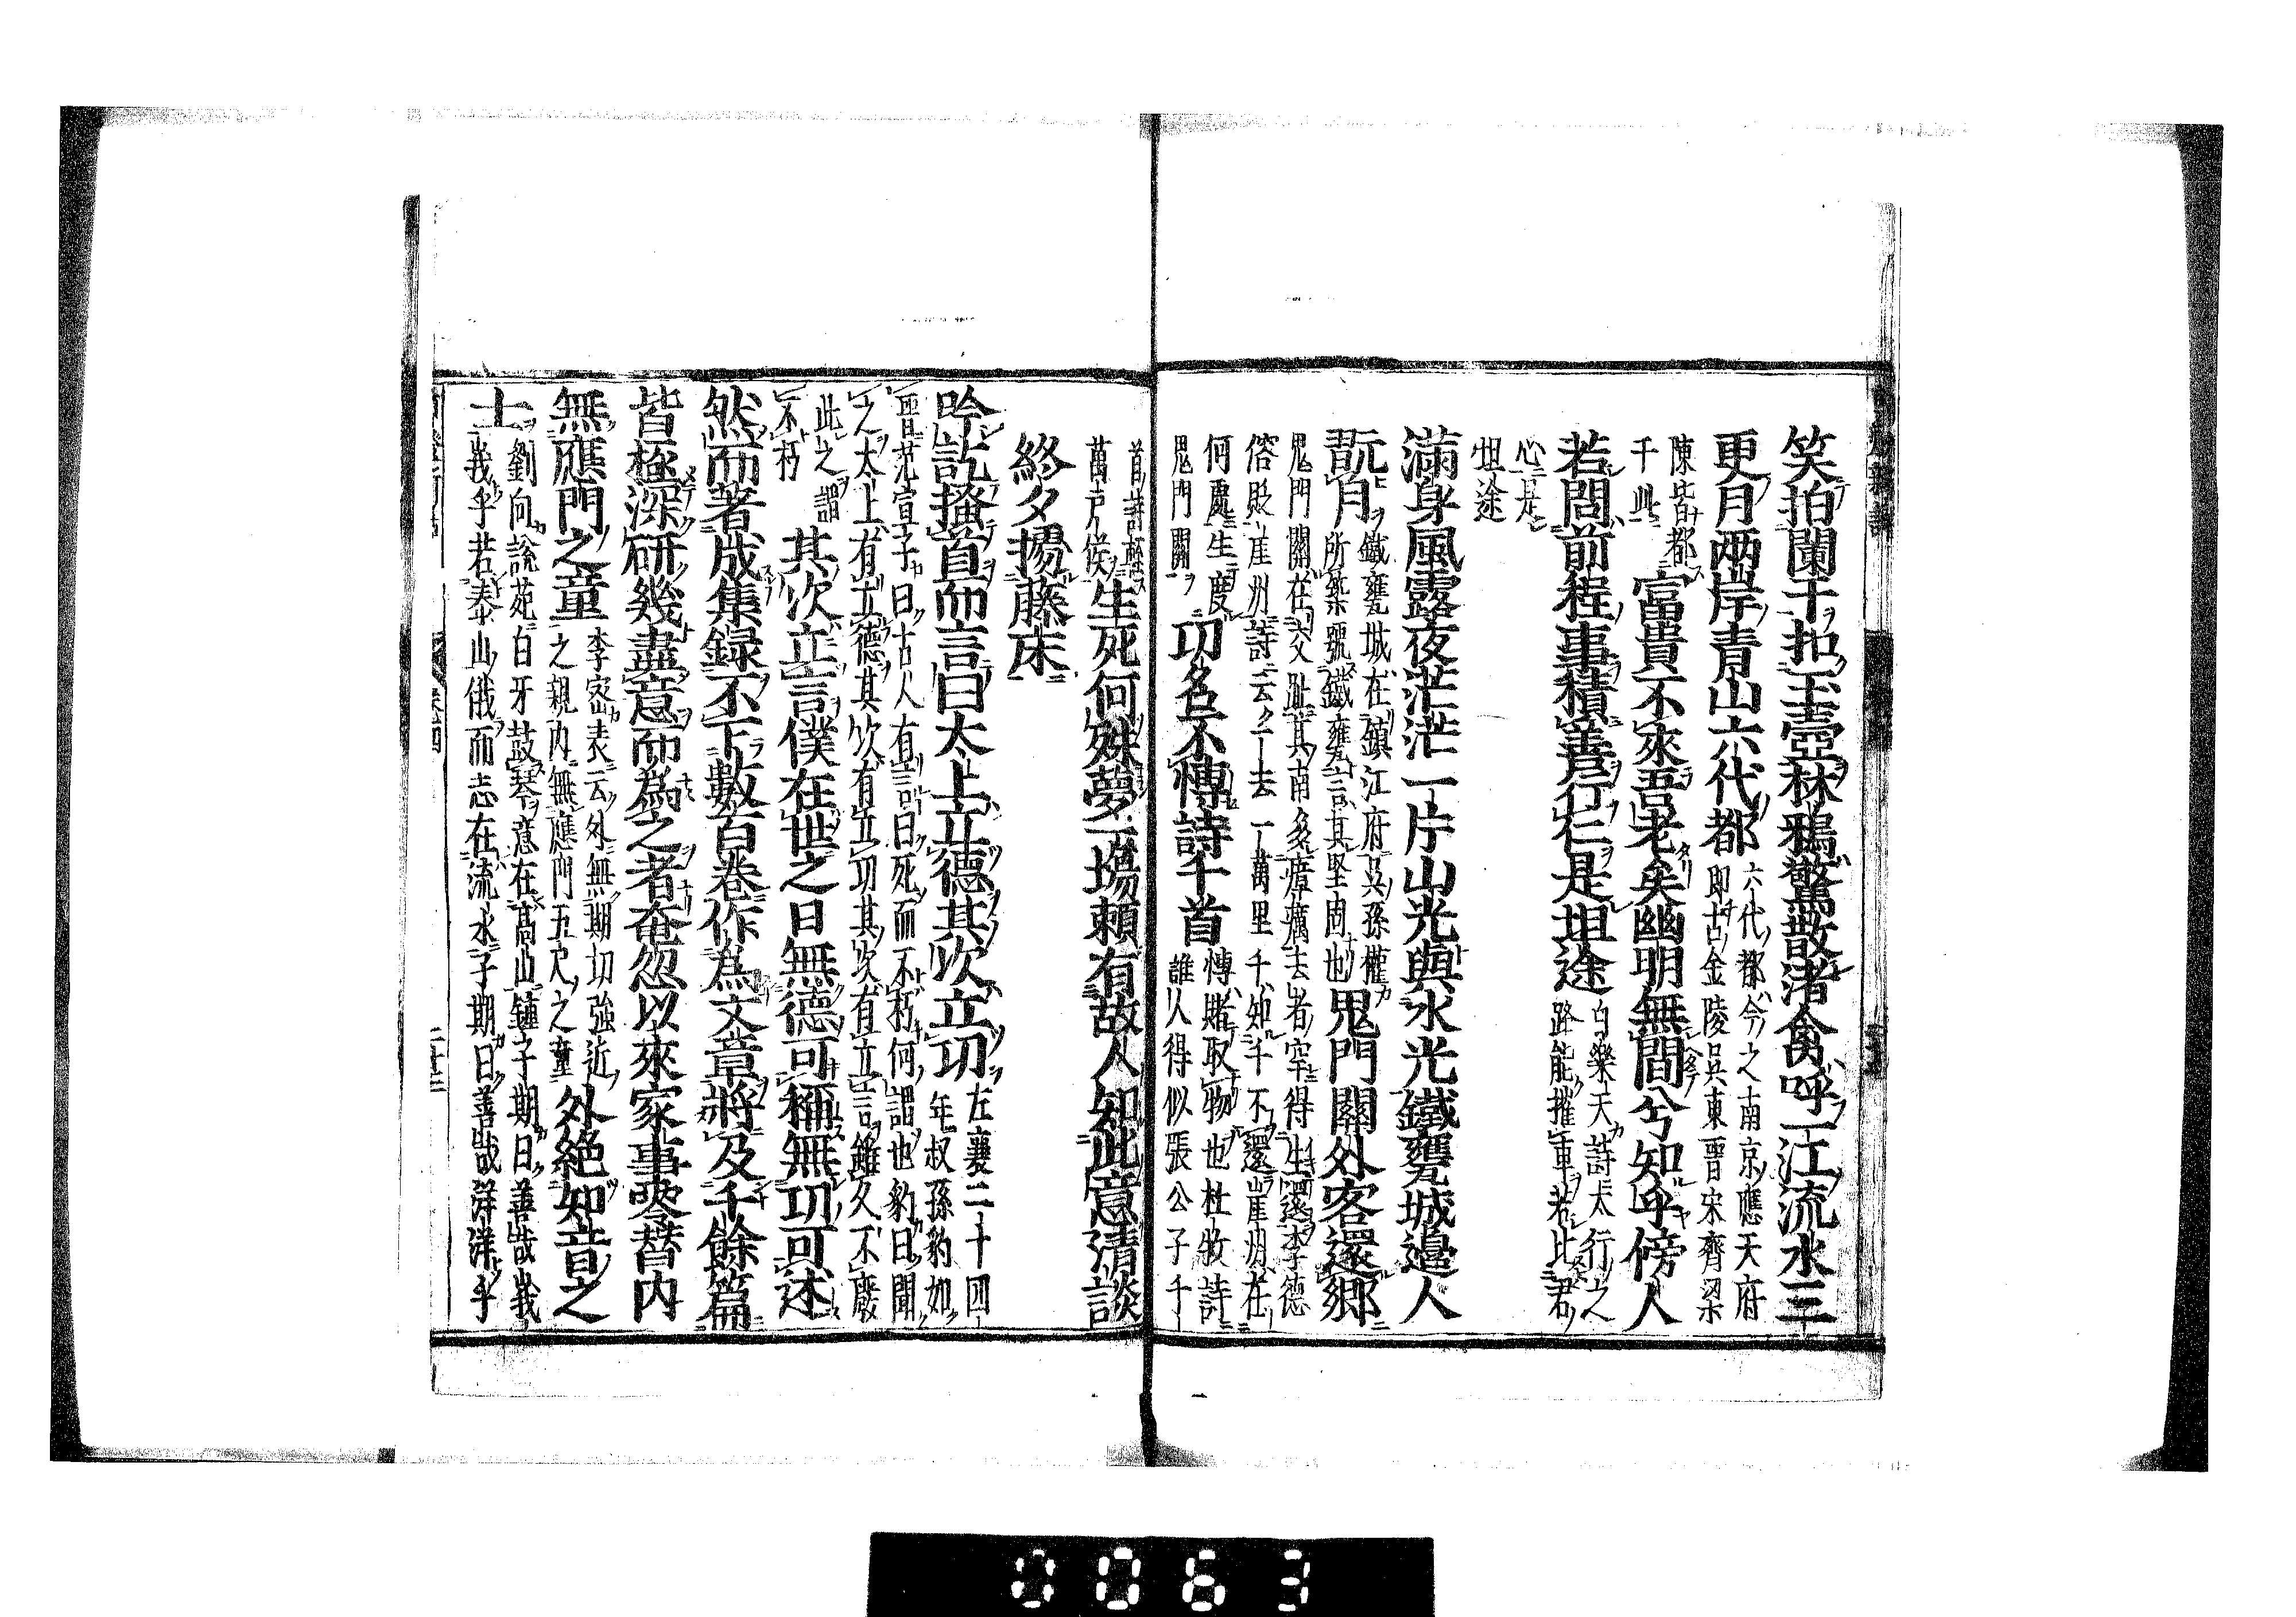 笑拍闌干扣玉壺林鴉驚散渚禽呼一江流水三
更月兩岸青山六代都
六代都今之南京應天府
即古金陵呉東晉宋齊梁
陳皆都
于此
富貴不來吾老矣幽明無間兮知乎傍人
若問前程事積善行仁是坦途
白樂天詩太行之
路能摧車若此君
心是
坦途
滿身風露夜茫茫一片山光與水光鐵甕城邊人
翫月
鐵甕城在鎮江府呉孫權
所築號鐵甕言其堅固也
鬼門關外客還鄉
鬼門關在交趾其南多瘴癘去者罕得生還李德
俗貶崖州詩云一去一萬里千知千不還崖州在
何處生度
鬼門關
功名不愽詩千首
愽賭取物也杜牧詩
誰人得似張公子千
首詩輕
萬戸侯
生死何殊夢一塲頼有故人知此意清談
終夕擾藤床
吟訖搔首而言曰太上立德其次立功
左襄二十四
年叔孫豹如
晉范宣子曰古人有言曰死而不朽何謂也豹曰聞
之太上有立德其次有立功其次有立言雖久不廢
此之謂
不朽
其次立言僕在世之日無德可稱無功可述
然而著成集録不下數百卷作爲文章將及千餘篇
皆極深研幾盡意而爲之者奄忽以來家事零替内
無應門之童
李密表云外無期切強近
之親内無應門五尺之童
外絶知音之
士
劉向說苑伯牙鼓琴意在髙山鍾子期曰善哉峩
峩乎若泰山俄而志在流水子期曰善哉洋洋乎
卷四
0063